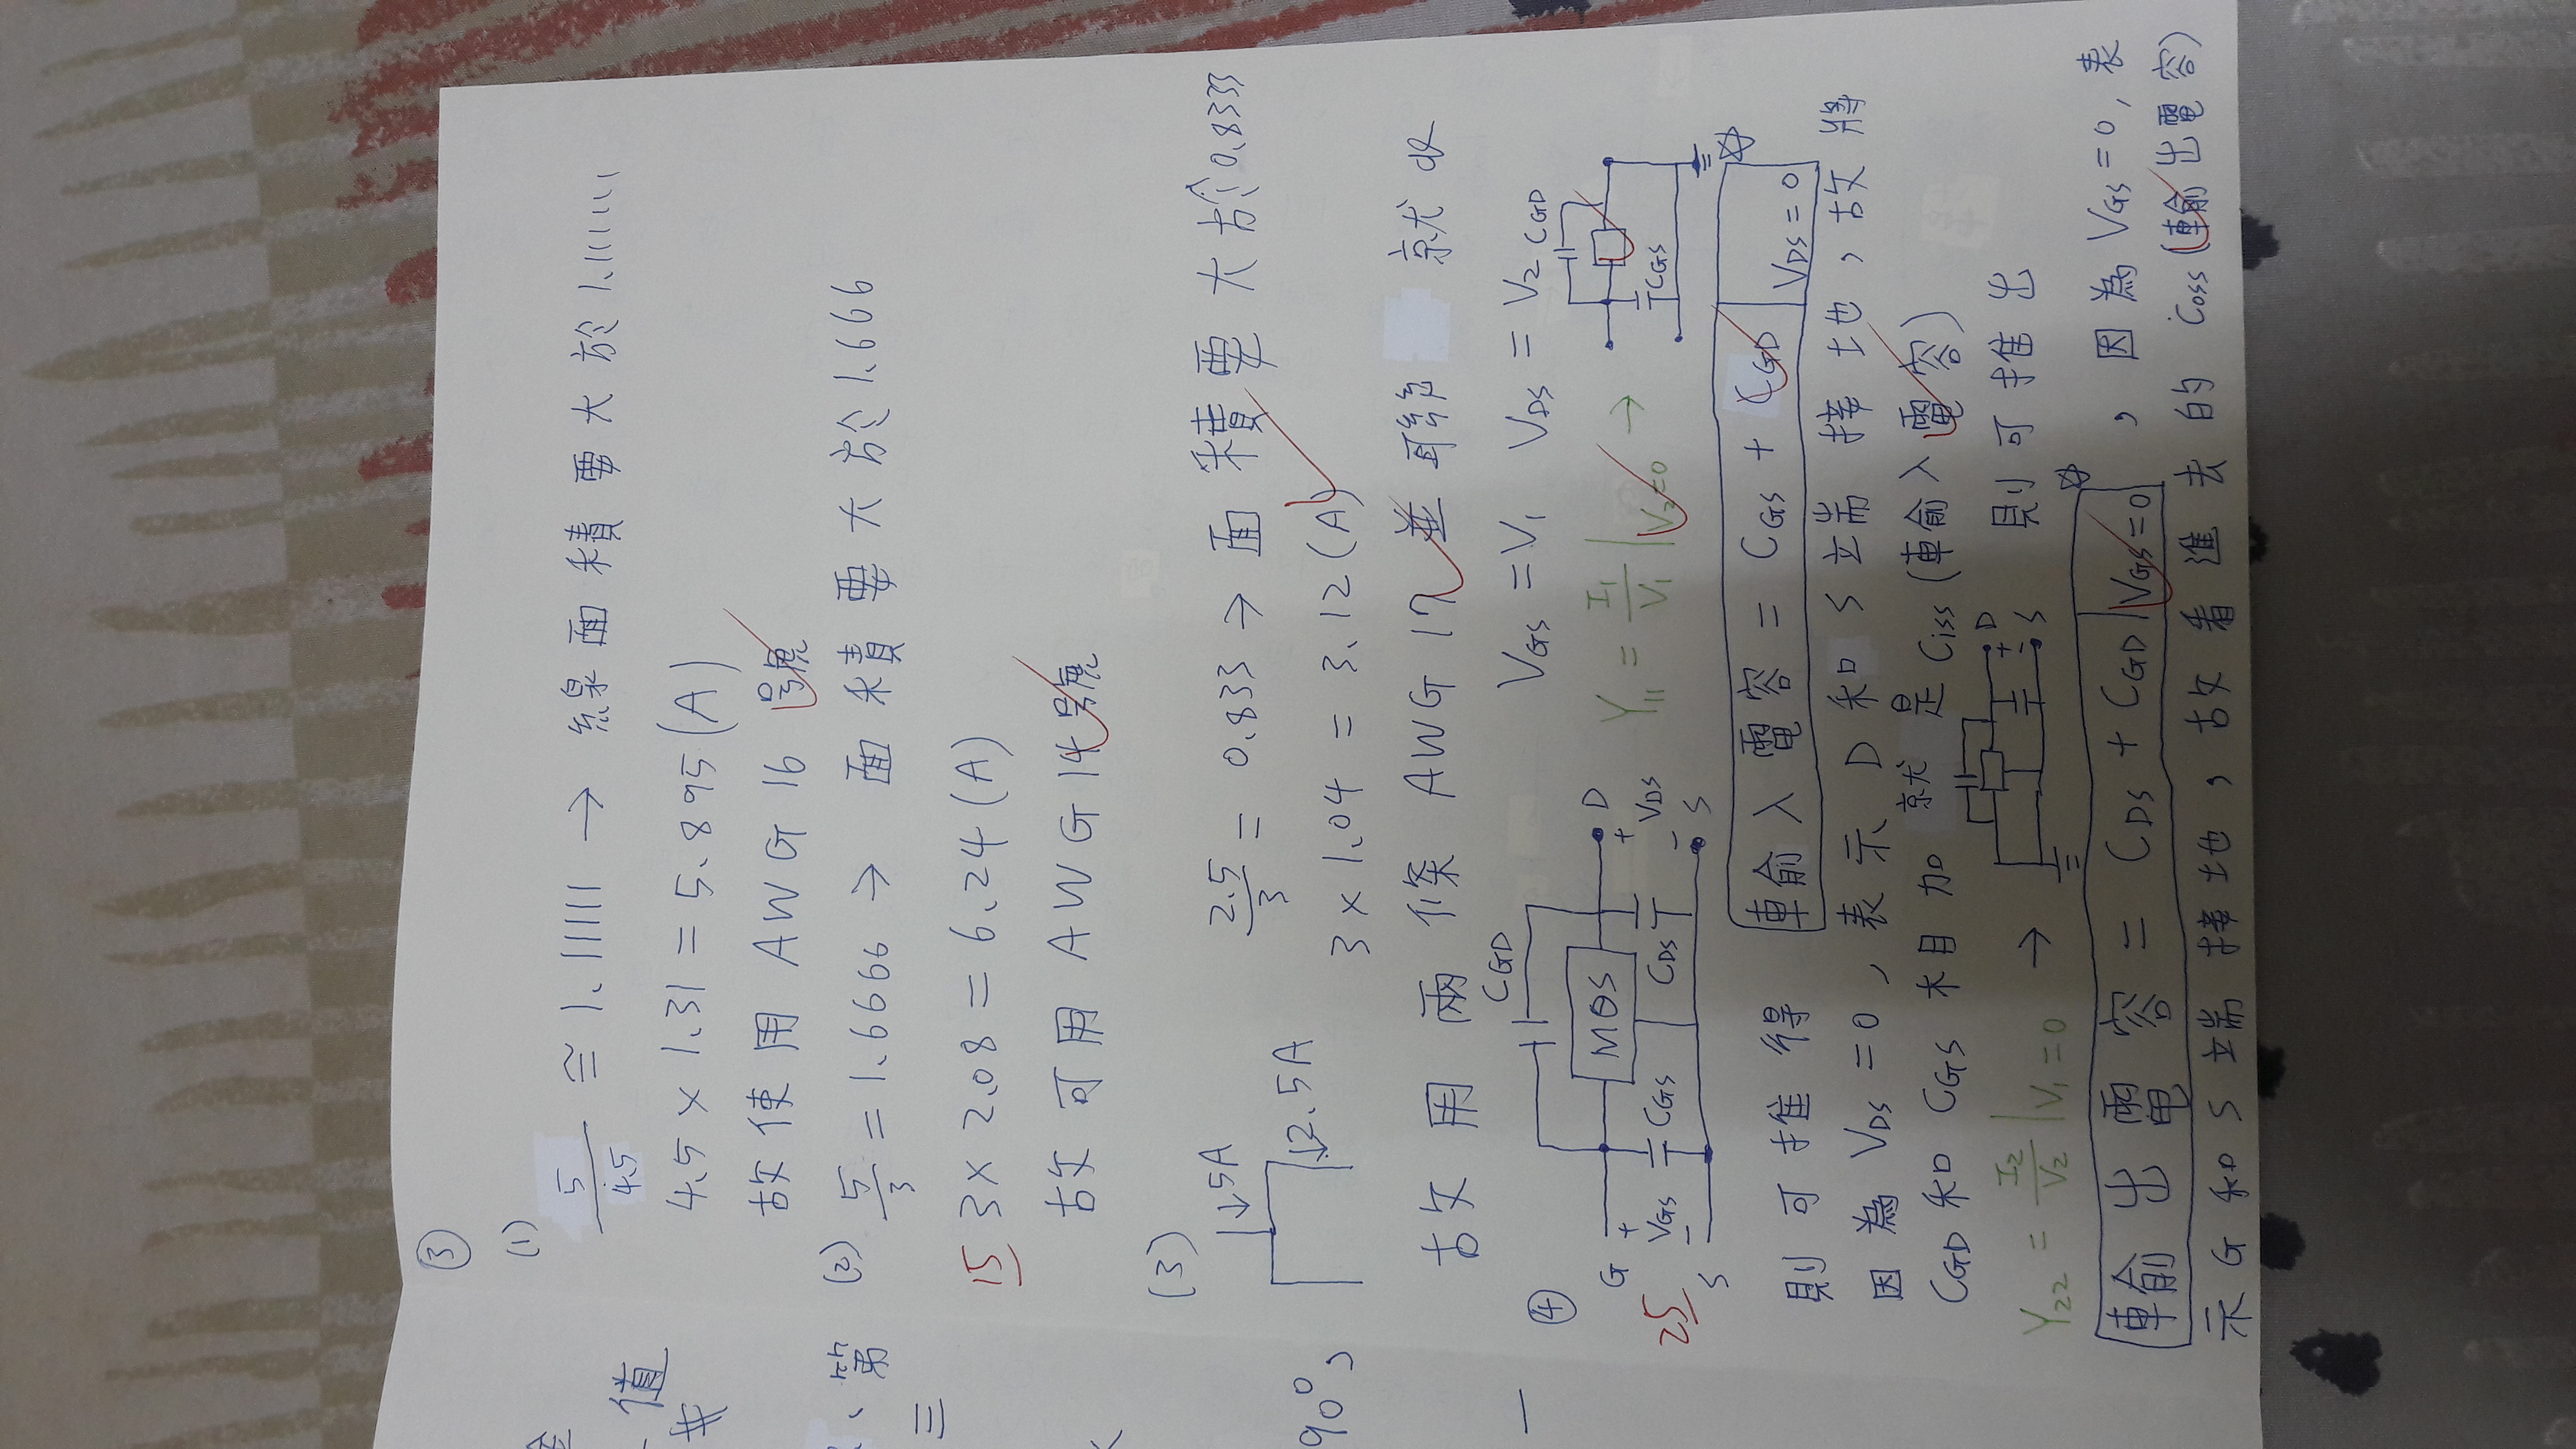 ③
(1)
5/4.5 ≅ 1.11111 → 線面積要大於1.111111
4.5 × 1.31 = 5.895 (A)
故使用 AWG 16 號
(2) 5/3 = 1.6666 → 面積要大於1.666
15 3 × 2.08 = 6.24 (A)
故可用 AWG 14 號
(3)
↓5A
↓2.5A
2.5/3 = 0.833 → 面積要大於0.8333
3 × 1.04 = 3.12 (A)
故用兩條 AWG 17 並聯 就
④
CGD
G MOS D
+ VGS - CGS CDS + VDS -
S S
25
VGS = V1 VDS = V2
Y11 = I1/V1 | V2=0 →
CGD
CGS
則可推得 輸入電容 = CGS + CGD | VDS = 0
因為 VDS = 0, 表示 D 和 S 端接地, 故將
CGD 和 CGS 相加就是 Ciss (輸入電容)
Y22 = I2/V2 | V1 = 0 → D + - S 則可推出
輸出電容 = CDS + CGD | VGS=0 , 因為 VGS=0, 表
示 G 和 S 端接地, 故看進去的 Coss (輸出電容)
值
、第
三
90°,
一